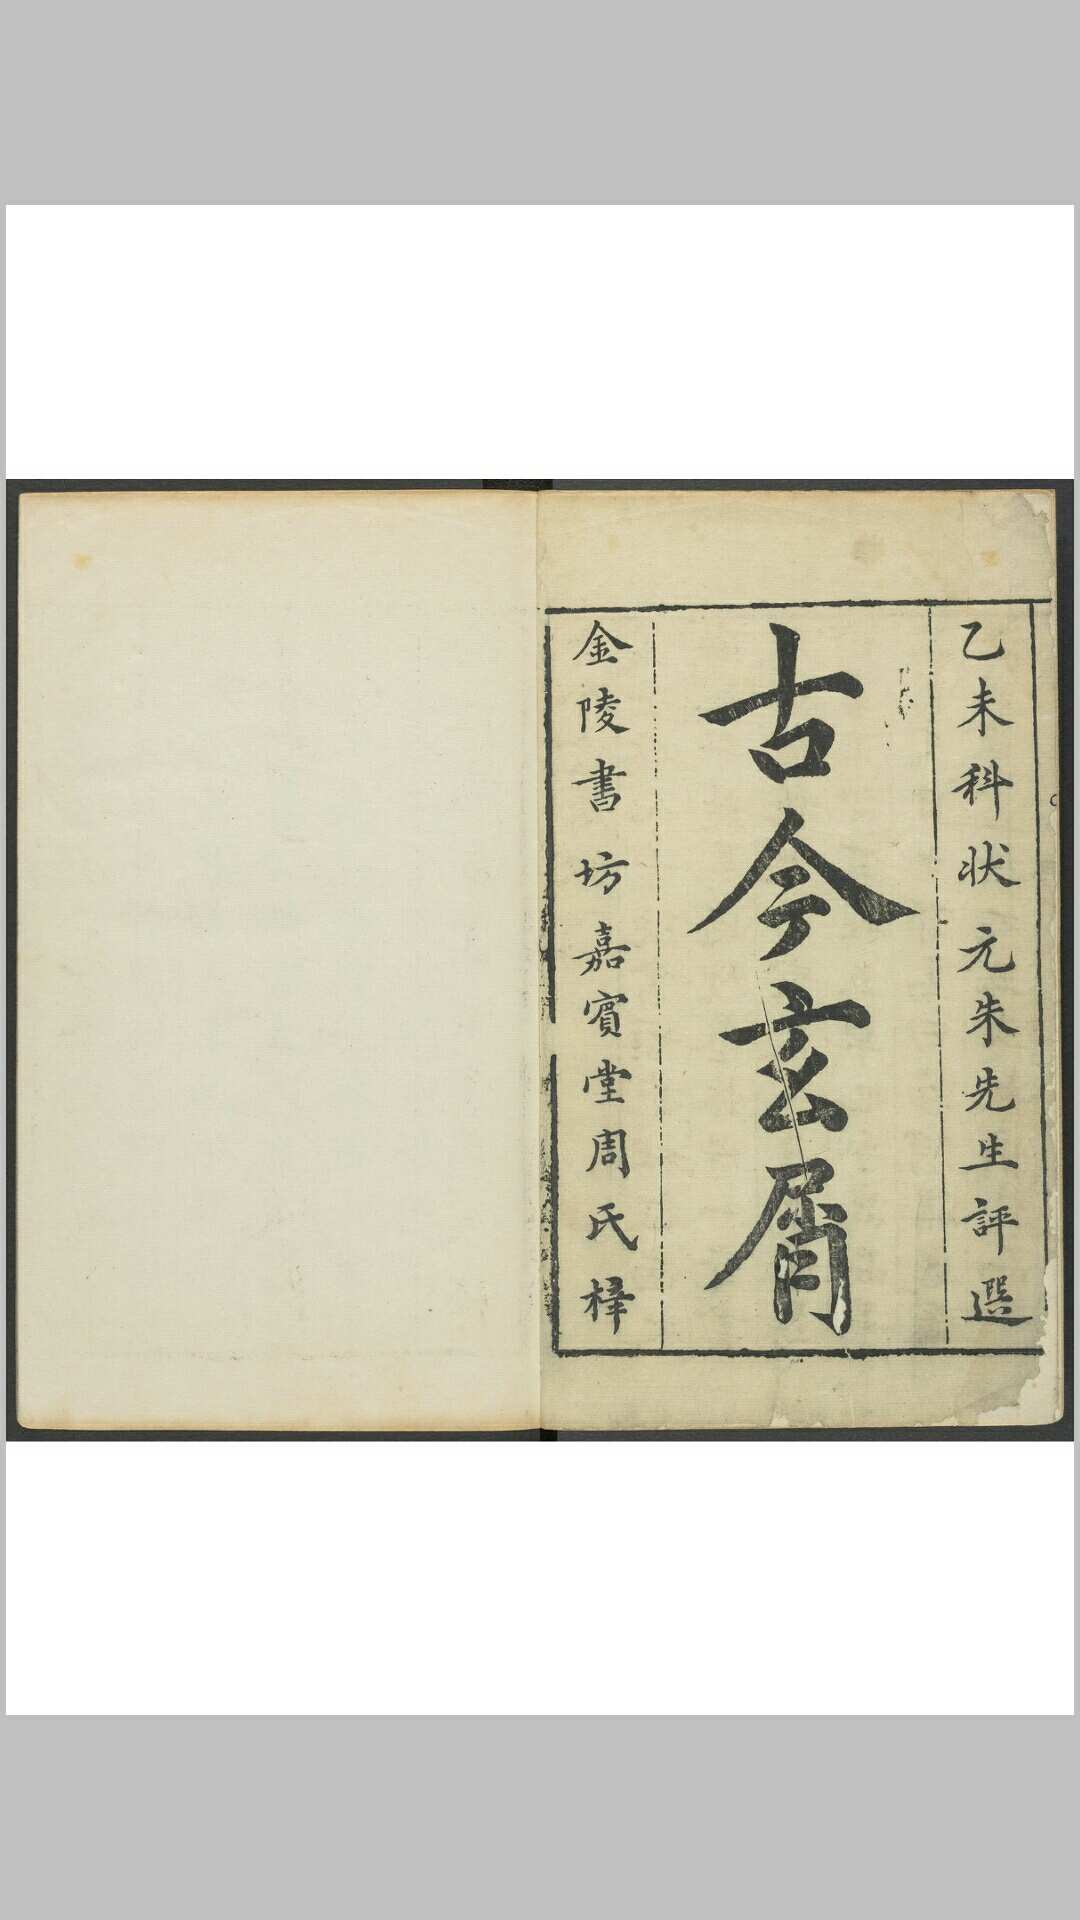 乙未科状元朱先生評選
古今玄屑
金陵書坊嘉賓堂周氏梓